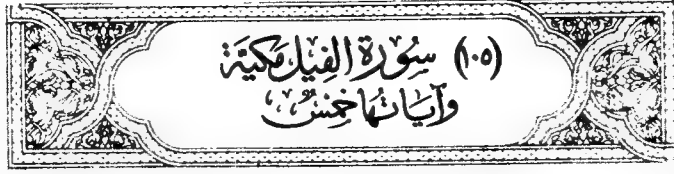 (١٠٥) سُورَةُ الفِيلِ مَكيَّة
وَآيَاتُهَا خَمْسٌ